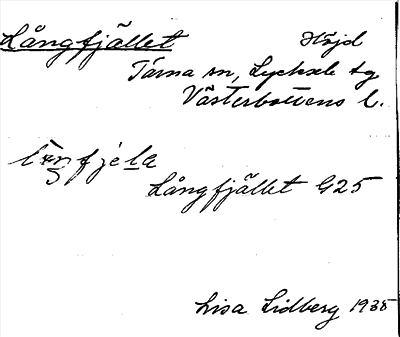 Långfjället Höjd
Tärna sn, Lycksele tg
Västerbottens l.
Långfjället G25
Lisa Lidberg 1935